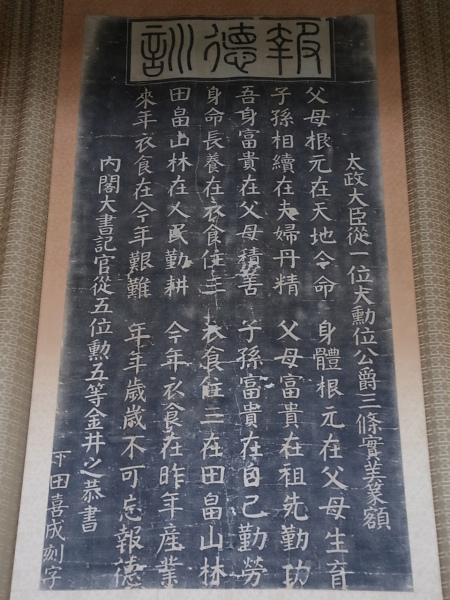 報德訓
太政大臣從一位大勲位公爵三條實美篆額
父母根元在天地令命 身體根元在父母生育
子孫相續在夫婦丹精 父母富貴在祖先勤功
吾身富貴在父母積善 子孫富貴在自己勤勞
身命長養在衣食住三 衣食住三在田畠山林
田畠山林在人民勤耕 今年衣食在昨年産業
來年衣食在今年艱難 年年歳歳不可忘報德
内閣大書記官從五位勲五等金井之恭書
下田喜成刻字